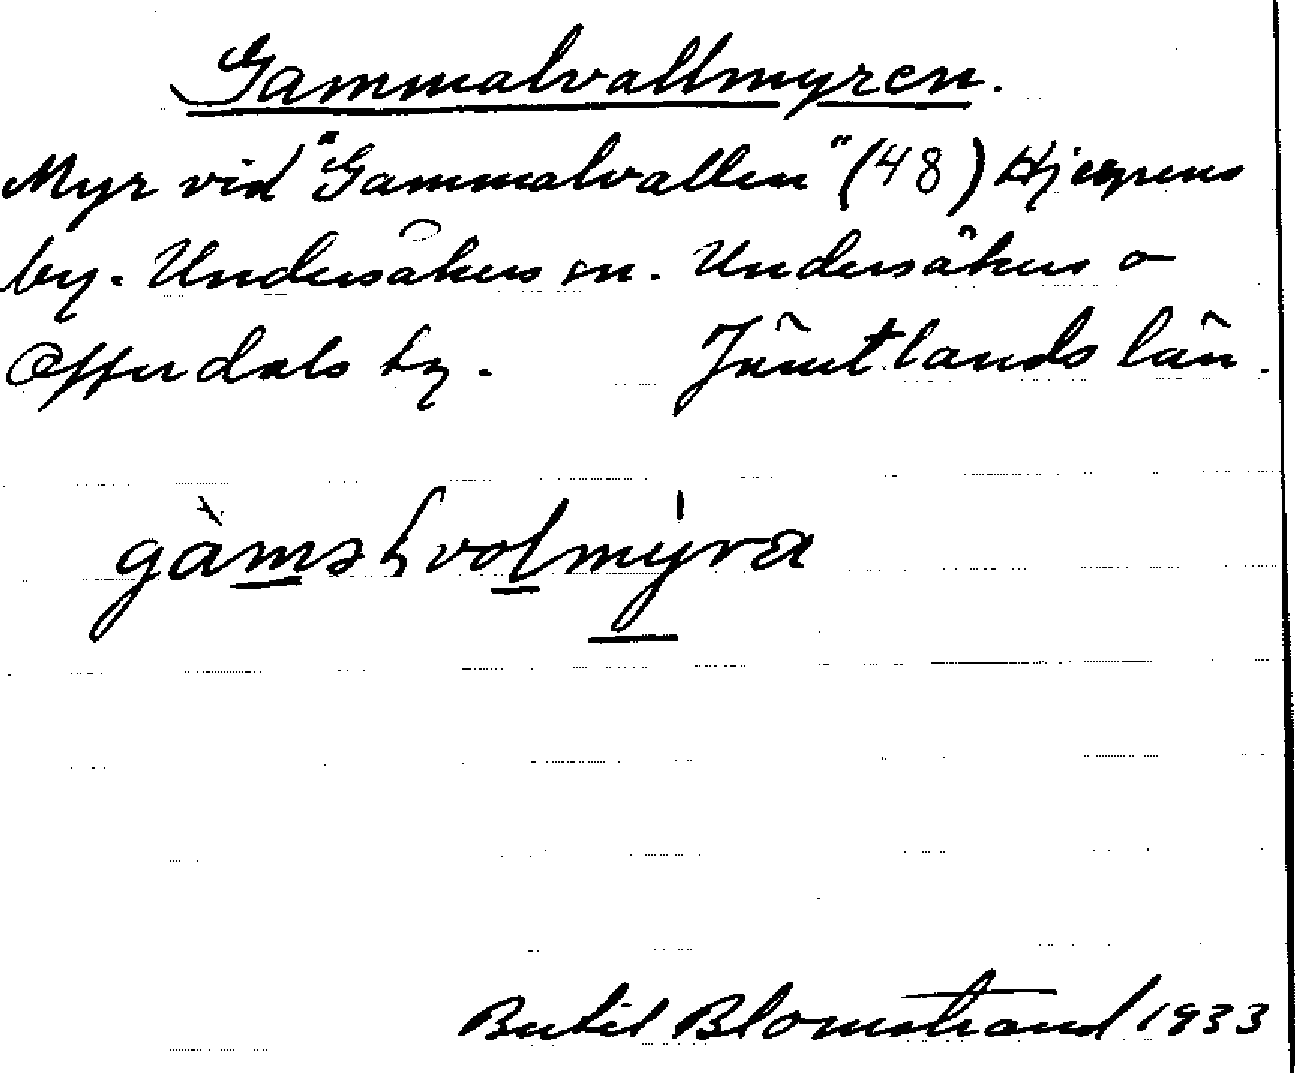 Gammalvallmyren.
Myr vid "Gammalvallen" (48) Hjerpens
by. Undersåkers sn. Undersåkers o
Offerdals hg. Jämtlands län.
gàməlvolmýra
Bertil Blomstrand 1933